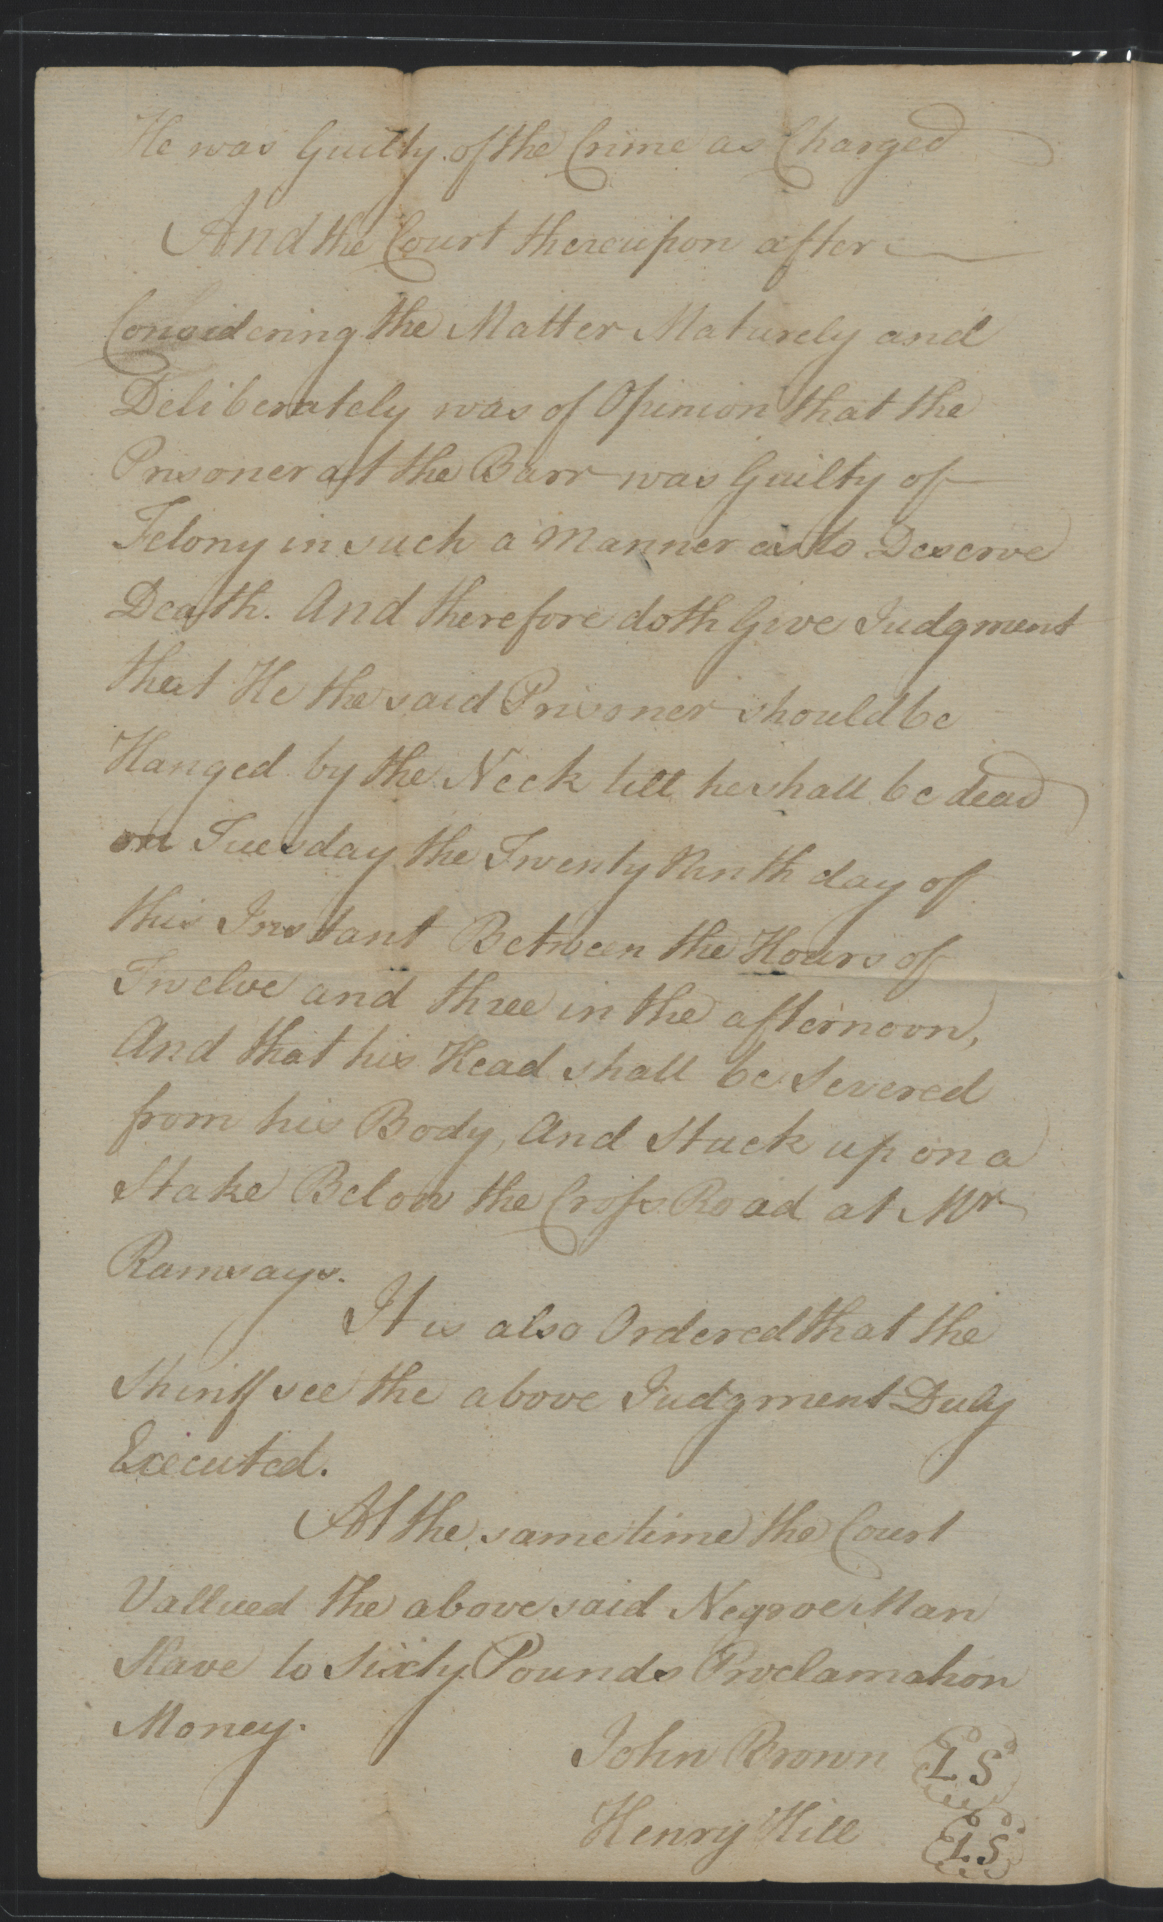 He was Guilty of the Crime as Charged
And the Court thereupon after
Considering the Matter Maturely and
Deliberately was of Opinion that the
Prisoner att the Barr was Guilty of
Felony in such a Manner as to Deserve
Death. And therefore doth Give Judgment
that He the said Prisoner should be
Hanged by the Neck till he shall be dead
on Tuesday the Twenty Ninth day of
this Instant Between the Hours of
Twelve and three in the afternoon,
And that his Head shall be Severed
from his Body, And Stuck up on a
Stake Below the Cross Road at Mr
Ramsays.
It is also Ordered that the
Shiriff see the above Judgment Duly
Executed.
At the same time the Court
Vallued the above said Negroe Man
Slave to Sixty Pounds Proclamation
Money.
John Brown L S
Henry Hill L S